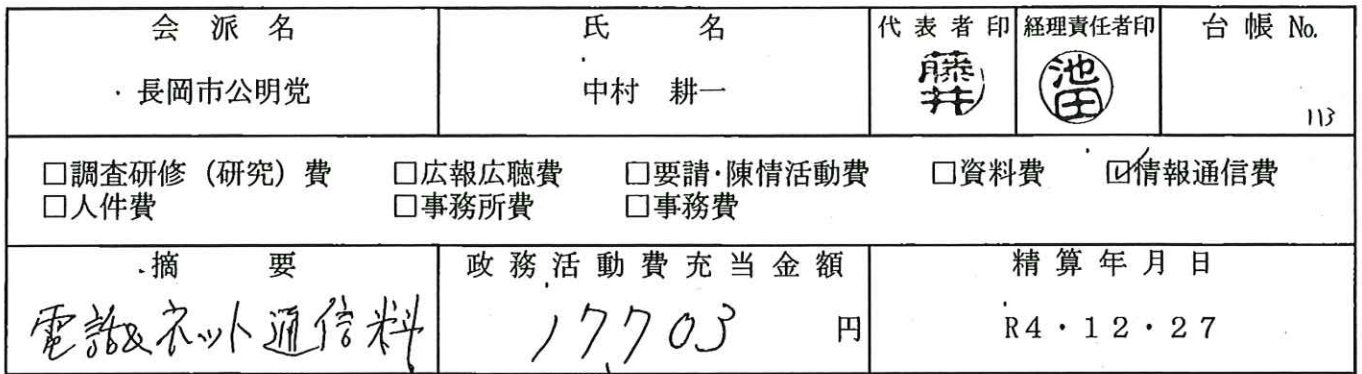 会派名 氏名 代表者印 経理責任者印 台帳No.
長岡市公明党 中村 耕一 藤井 池田 113
□調査研修（研究）費 □広報広聴費 □要請・陳情活動費 □資料費 ☑情報通信費
□人件費 □事務所費 □事務費
摘要 政務活動費充当金額 精算年月日
電話&ネット通信料 17,703 円 R4・12・27